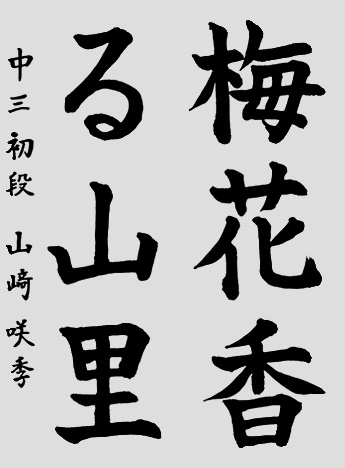 梅花香
る山里
中三 初段 山崎 咲季